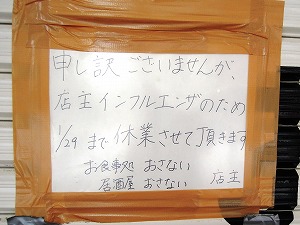 申し訳ございませんが、
店主インフルエンザのため
1/29まで休業させて頂きます
お食事処 おさない
居酒屋 おさない 店主